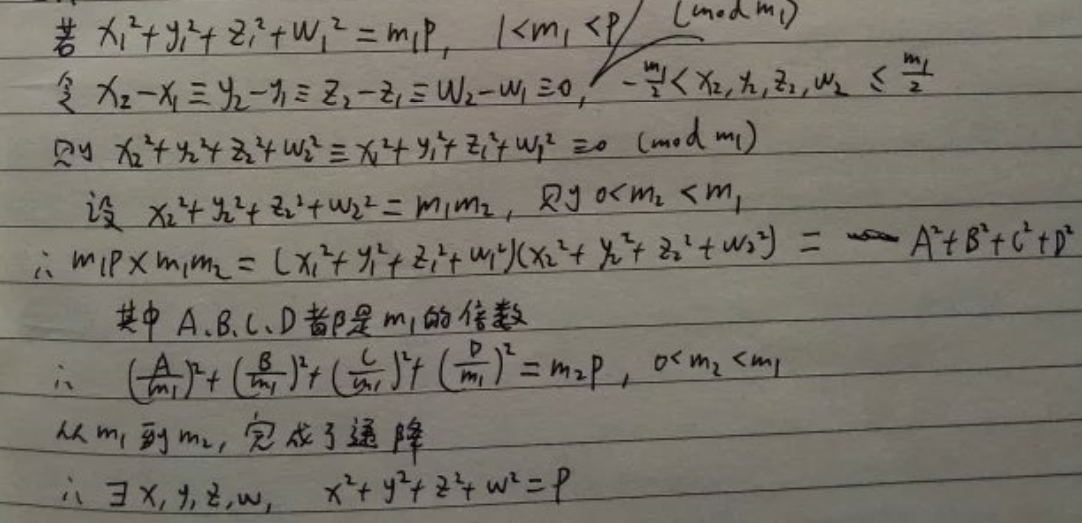 若 x₁²+y₁²+z₁²+w₁²=m₁p, 1<m₁<p (mod m₁)
令 x₂-x₁≡y₂-y₁≡z₂-z₁≡w₂-w₁≡0, -m₁/2<x₂,y₂,z₂,w₂≤m₁/2
则 x₂²+y₂²+z₂²+w₂²≡x₁²+y₁²+z₁²+w₁²≡0 (mod m₁)
设 x₂²+y₂²+z₂²+w₂²=m₁m₂, 则 0<m₂<m₁
∴ m₁p×m₁m₂=(x₁²+y₁²+z₁²+w₁²)(x₂²+y₂²+z₂²+w₂²)= A²+B²+C²+D²
其中 A、B、C、D都是m₁的倍数
∴ (A/m₁)²+(B/m₁)²+(C/m₁)²+(D/m₁)²=m₂p, 0<m₂<m₁
从m₁到m₂, 完成了递降
∴ ∃x,y,z,w, x²+y²+z²+w²=p